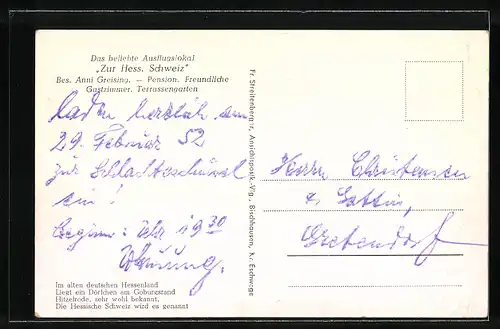 Das beliebte Ausflugslokal
„Zur Hess. Schweiz"
Bes. Anni Greising. — Pension. Freundliche
Gastzimmer. Terrassengarten
laden herzlich am
29. Februar 52
zur Schlachteschüssel
ein!
Beginn: Uhr 19 30
Im alten deutschen Hessenland
Liegt ein Dörfchen am Goburgstand
Hitzelrode, sehr wohl bekannt,
Die Hessische Schweiz wird es genannt
Fr. Streitenberger, Ansichtspostk.-Vlg., Bischhausen, Kr. Eschwege
Herrn Christensen
& Gattin,
Grebendorf